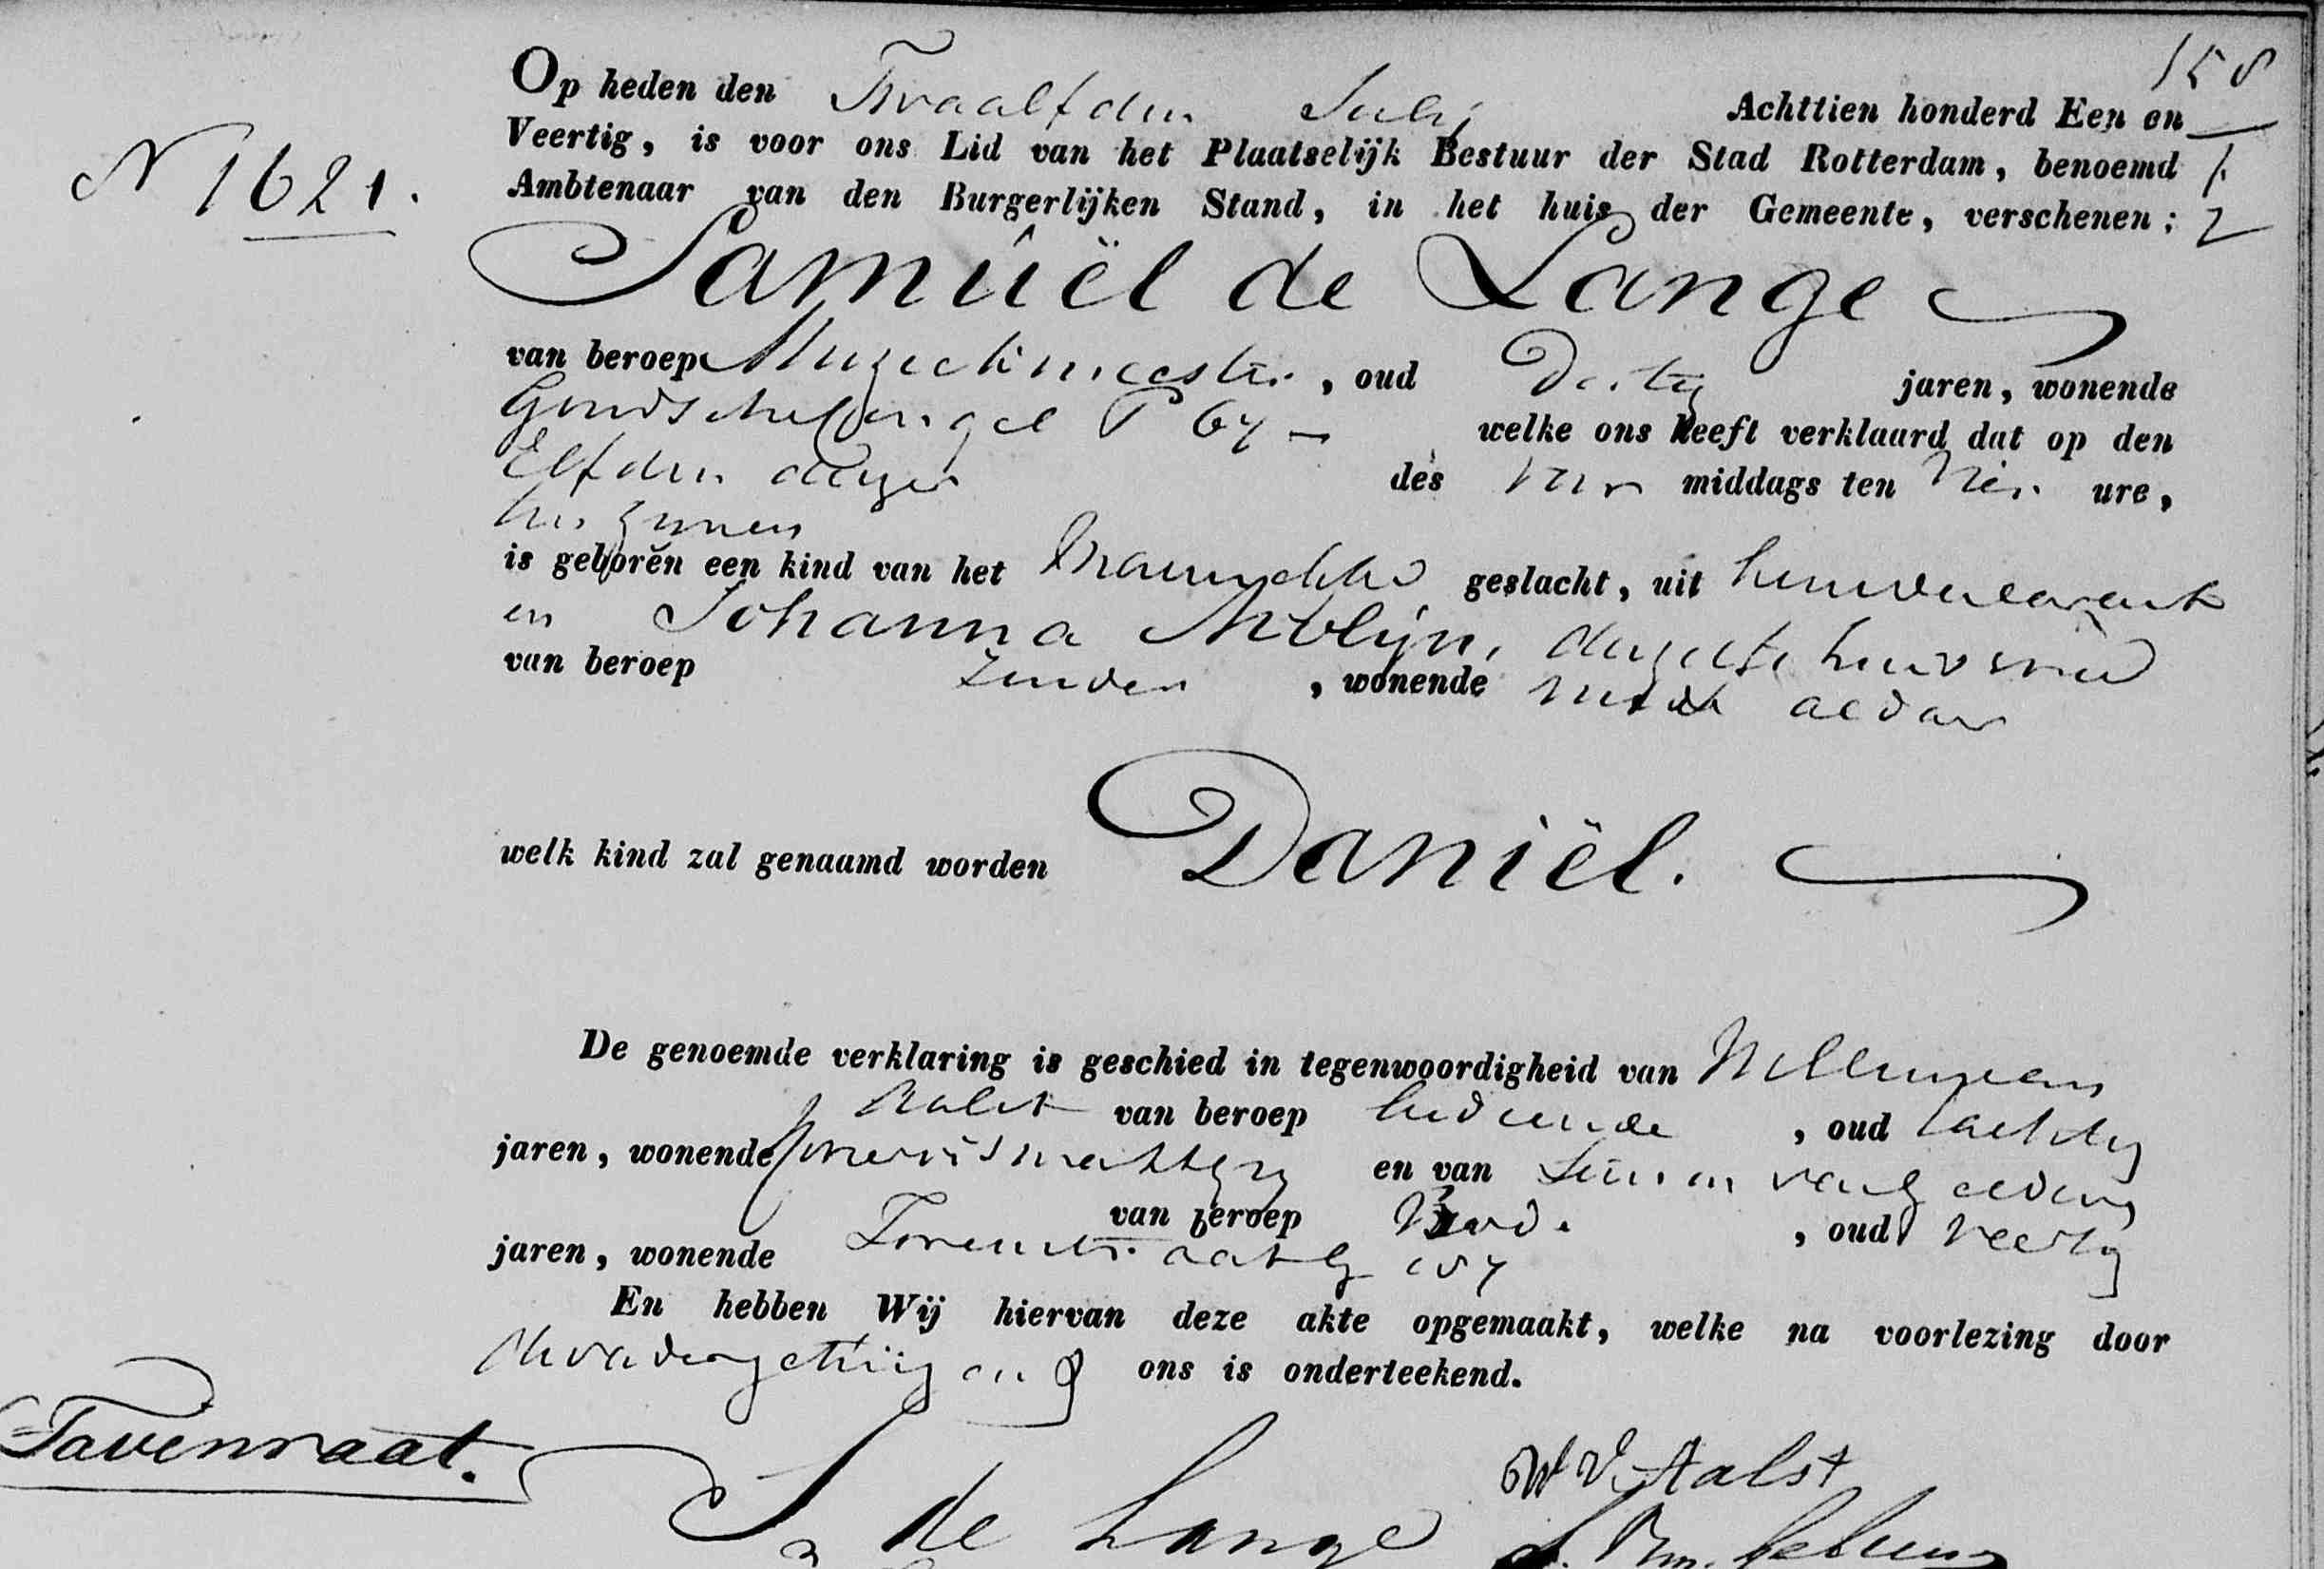 158
Op heden den Twaalfden Julij Achttien honderd Een en
N 1621.
Veertig, is voor ons Lid van het Plaatselijk Bestuur der Stad Rotterdam, benoemd
Ambtenaar van den Burgerlijken Stand, in het huis der Gemeente, verschenen: 2
Samúël de Lange
van beroep Muzeekmeester, oud Dertig jaren, wonende
welke ons heeft verklaard dat op den
Elfden dezer des voor middags ten vier ure,
is geboren een kind van het Mannelijk geslacht, uit hem declarant
en Johanna Molijn, deszelfs huisvrouw
van beroep zonder, wonende mede aldaar
welk kind zal genaamd worden Daniël.
De genoemde verklaring is geschied in tegenwoordigheid van Willem van
Aalst van beroep bediende, oud tachtig
jaren, wonende en van Simon van Gelder
van beroep, oud Veertig
jaren, wonende Torenstraat
En hebben Wij hiervan deze akte opgemaakt, welke na voorlezing door
de vader getuigen & ons is onderteekend.
Tavenraat.
S de Lange
W V Aalst